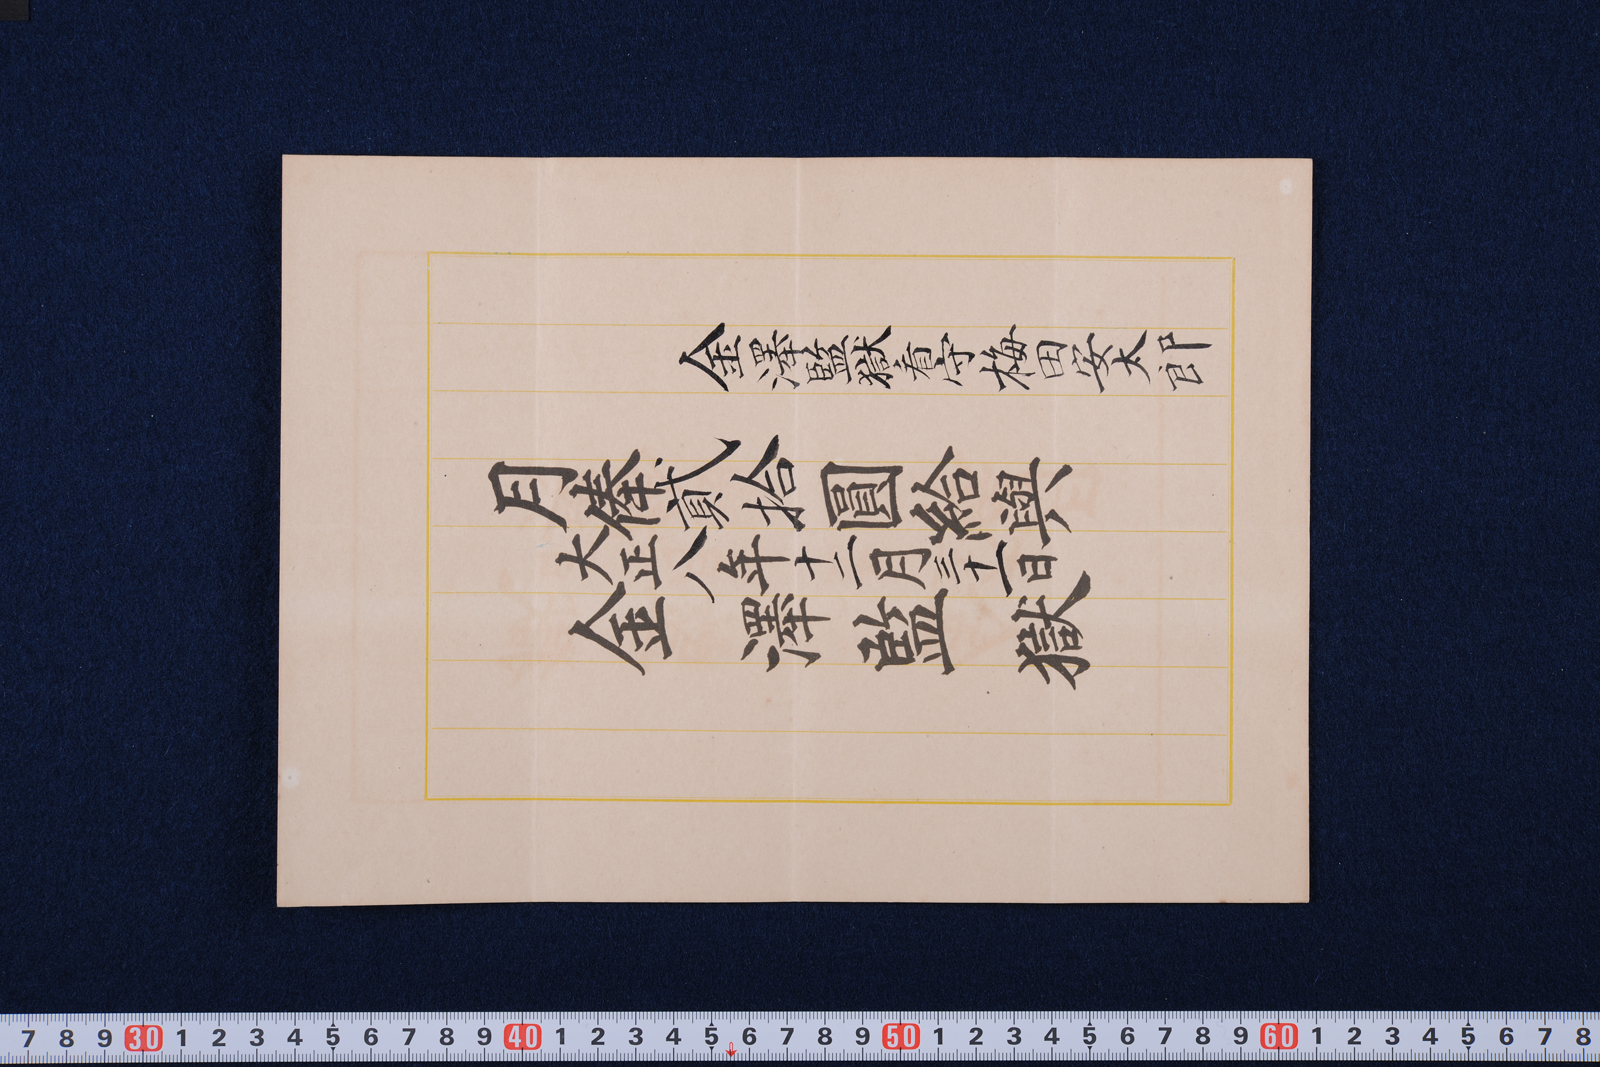 金澤監獄看守梅田安太郎
月俸貳拾圓給與
大正八年十二月三十一日
金澤監獄
7 8 9 30 1 2 3 4 5 6 7 8 9 40 1 2 3 4 5 6 7 8 9 50 1 2 3 4 5 6 7 8 9 60 1 2 3 4 5 6 7 8